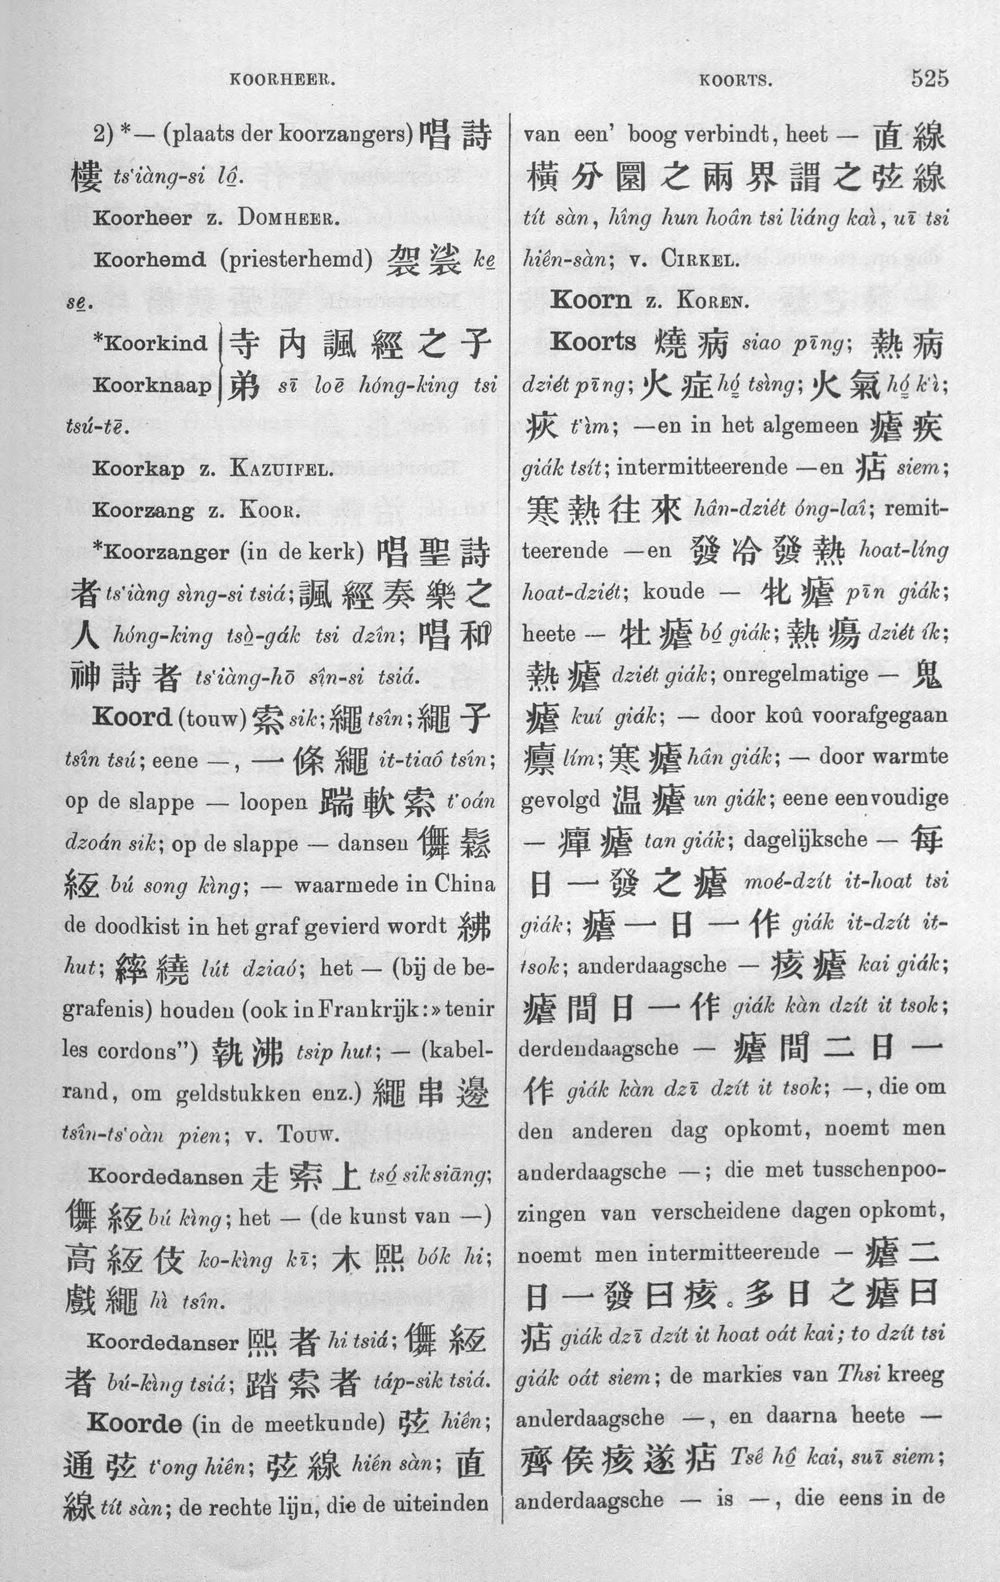 KOORHEER.
KOORTS.
525
2) *— (plaats der koorzangers) 唱詩
樓 ts‘iàng-si lô.
Koorheer z. DOMHEER.
Koorhemd (priesterhemd) 袈裟 ke
se.
*Koorkind 寺內諷經之子
Koorknaap 弟 sī loē hóng-king tsi
tsú-tē.
Koorkap z. KAZUIFEL.
Koorzang z. KOOR.
*Koorzanger (in de kerk) 唱聖詩
者 ts‘iàng sìng-si tsiá; 諷經奏樂之
人 hóng-king tsò-gák tsi dzîn; 唱和
神詩者 ts‘iàng-hō sîn-si tsiá.
Koord (touw) 索 sik; 繩 tsîn; 繩子
tsîn tsú; eene —, 一條繩 it-tiaô tsîn;
op de slappe — loopen 踹軟索 t‘oán
dzoán sik; op de slappe — dansen 儛鬆
絙 bú song kìng; — waarmede in China
de doodkist in het graf gevierd wordt 紼
hut; 繂繞 lút dziaó; het — (bij de be-
grafenis) houden (ook in Frankrijk: »tenir
les cordons”) 執沸 tsip hut; — (kabel-
rand, om geldstukken enz.) 繩串邊
tsîn-ts‘oàn pien; v. TOUW.
Koordedansen 走索上 tsó sik siāng;
儛絙 bú kìng; het — (de kunst van —)
高絙伎 ko-kìng kī; 木熙 bók hi;
戲繩 hì tsîn.
Koordedanser 熙者 hi tsiá; 儛絙
者 bú-kìng tsiá; 踏索者 táp-sik tsiá.
Koorde (in de meetkunde) 弦 hiên;
通弦 t‘ong hiên; 弦線 hiên sàn; 直
線 tít sàn; de rechte lijn, die de uiteinden
van een’ boog verbindt, heet — 直線
橫分圜之兩界謂之弦線
tít sàn, hîng hun hoân tsi liáng kaì, uī tsi
hiên-sàn; v. CIRKEL.
Koorn z. KOREN.
Koorts 燒病 siao pīng; 熱病
dziét pīng; 火症 hó tsìng; 火氣 hó k‘ì;
疢 t‘ìm; —en in het algemeen 瘧疾
giák tsít; intermitteerende —en 痁 siem;
寒熱往來 hân-dziét óng-laî; remit-
teerende —en 發冷發熱 hoat-líng
hoat-dziét; koude — 牝瘧 pīn giák;
heete — 牡瘧 bó giák; 熱瘍 dziét ík;
熱瘧 dziét giák; onregelmatige — 鬼
瘧 kuí giák; — door koû voorafgegaan
癛 lím; 寒瘧 hân giák; — door warmte
gevolgd 温瘧 un giák; eene eenvoudige
— 癉瘧 tan giák; dagelijksche — 每
日一發之瘧 moé-dzít it-hoat tsi
giák; 瘧一日一作 giák it-dzít it-
tsok; anderdaagsche — 痎瘧 kai giák;
瘧間日一作 giák kàn dzít it tsok;
derdendaagsche — 瘧間二日一
作 giák kàn dzī dzít it tsok; —, die om
den anderen dag opkomt, noemt men
anderdaagsche —; die met tusschenpoo-
zingen van verscheidene dagen opkomt,
noemt men intermitteerende — 瘧二
日一發曰痎。多日之瘧曰
痁 giák dzī dzít it hoat oát kai; to dzít tsi
giák oát siem; de markies van Thsi kreeg
anderdaagsche —, en daarna heete —
齊侯痎遂痁 Tsê hô kai, suī siem;
anderdaagsche — is —, die eens in de